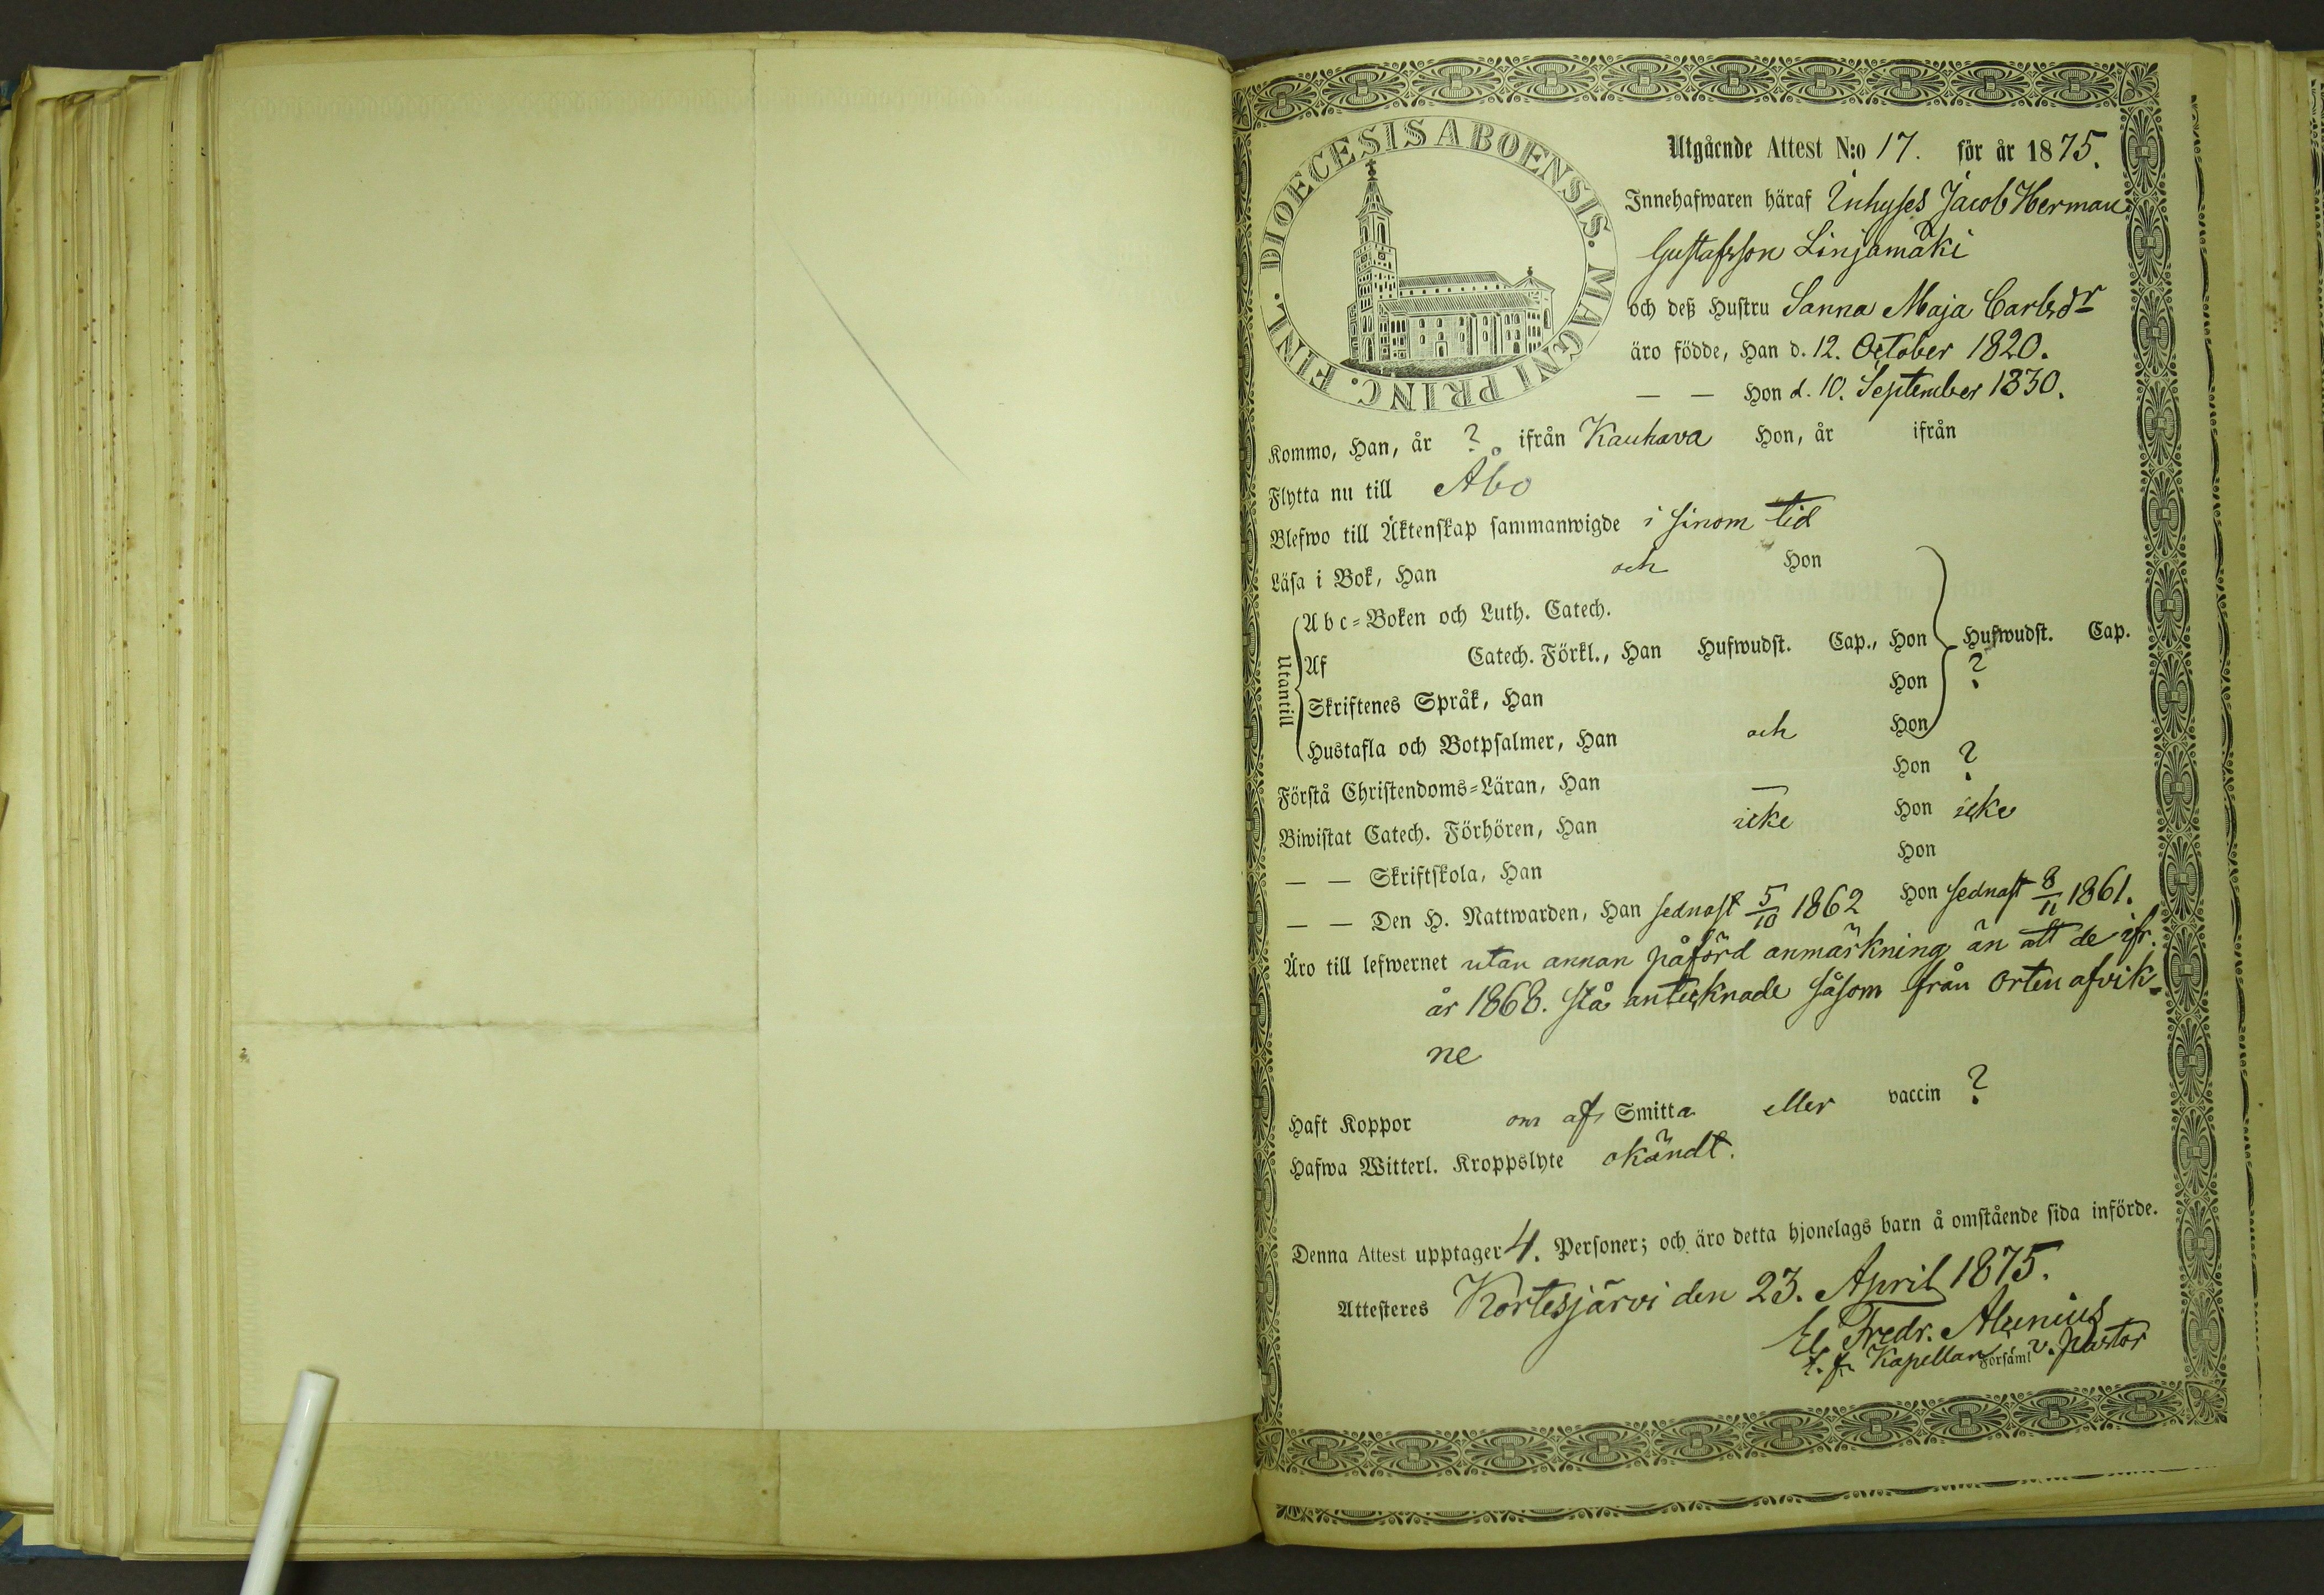 DIOECESIS ABOENSIS. MAGNI PRINC. FINL.
Utgående Attest N:o 17. för år 1875.
Innehafwaren häraf Inhyses Jacob Herman
Gustafsson Linjamäki
och deß Hustru Sanna Maja Carlsdr
äro födde, Han d. 12. October 1820.
— — Hon d. 10. September 1830.
Kommo, Han, år ? ifrån Kauhava Hon, år ifrån
Flytta nu till Åbo
Blefwo till Äktenskap sammanwigde i sinom tid
Läsa i Bok, Han och Hon
Utantill
Abc-Boken och Luth. Catech.
Af Catech. Förkl., Han Hufwudst. Cap., Hon Hufwudst. Cap.
Skriftenes Språk, Han Hon ?
Hustafla och Botpsalmer, Han och Hon
Förstå Christendoms-Läran, Han — Hon ?
Biwistat Catech. Förhören, Han icke Hon icke
— — Skriftskola, Han Hon
— — Den H. Nattwarden, Han sednast 5/10 1862 Hon sednast 8/11 1861.
Äro till lefwernet utan annan påförd anmärkning än att de ifr.
år 1868. stå antecknade såsom från orten afvik-
ne
Haft Koppor om af Smitta eller vaccin ?
Hafwa Witterl. Kroppslyte okändt.
Denna Attest upptager 4. Personer; och äro detta hjonelags barn å omstående sida införde.
Attesteres Kortesjärvi den 23. April 1875.
El. Fredr. Alcenius
t. f. Kapellan Församl v. pastor